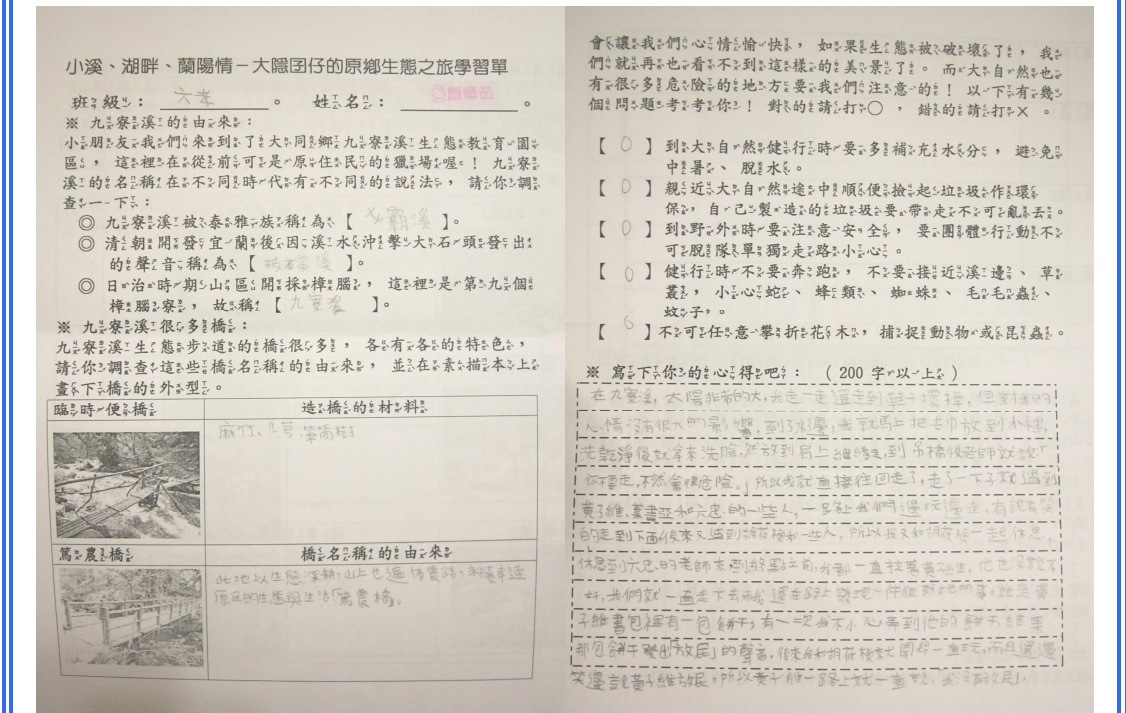 小溪、湖畔、蘭陽情－大隱囝仔的原鄉生態之旅學習單
班級： 六孝 。 姓名： 。
※ 九寮溪的由來：
小朋友我們來到了大同鄉九寮溪生態教育園
區，這裡在從前可是原住民的獵場喔！九寮
溪的名稱在不同時代有不同的說法，請你調
查一下：
◎ 九寮溪被泰雅族稱為【 霸溪 】。
◎ 清朝開發宜蘭後因溪水沖擊大石頭發出
的聲音稱為【 溪 】。
◎ 日治時期山區開採樟腦，這裡是第九個
樟腦寮，故稱【 九寮溪 】。
※ 九寮溪很多橋：
九寮溪生態步道的橋很多，各有各的特色，
請你調查這些橋名稱的由來，並在素描本上
畫下橋的外型。
臨時便橋 造橋的材料
麻竹、九芎、筆筒樹
篤農橋 橋名稱的由來
此地以生態深耕，山上也遍佈農路，
原民的生態與生活「篤農橋。
會讓我們心情愉快，如果生態被破壞了，我
們就再也看不到這樣的美景了。而大自然也
有很多危險的地方要我們注意的！以下有幾
個問題考考你！對的請打○，錯的請打×。
【 ○ 】到大自然健行時要多補充水分，避免
中暑、脫水。
【 ○ 】親近大自然途中順便撿起垃圾作環
保，自己製造的垃圾要帶走不可亂丟。
【 ○ 】到野外時要注意安全，要團體行動不
可脫隊單獨走路小心。
【 ○ 】健行時不要奔跑，不要接近溪邊、草
叢，小心蛇、蜂類、蜘蛛、毛毛蟲、
蚊子。
【 ○ 】不可任意攀折花木，捕捉動物或昆蟲。
※ 寫下你的心得吧：（200 字以上）
在九寮溪，太陽非常的大，我走一走還走到鞋子壞掉，但對我的
心情沒有很大的影響，到了水邊，我就馬上把毛巾放到水裡，
洗乾淨後就拿來洗臉，然放到肩上繼續走，到吊橋後老師就說：「
你不要走，不然會很危險。」所以我就直接往回走了，走了一下子就遇到
黃子維、和六忠的一些人，一路上我們邊玩邊走，有說有笑
的走到下面後來又遇到胡荏棱和一些人，所以我又和胡荏棱一起休息，
休息到六忠的老師來到終點之前，我都一直拉著黃子維，他也沒說不
好，我們就一直走下去，還走路上發現一件很好的事，就是黃
子維書包裡有一包餅干，有一次我不小心弄到他的餅干，結果
那包餅干發出「放屁」的聲音，後來我和胡荏棱就開始一直玩，而且還邊
笑邊說黃子維放屁，所以黃子維一路上就一直說：「我沒有放屁」。